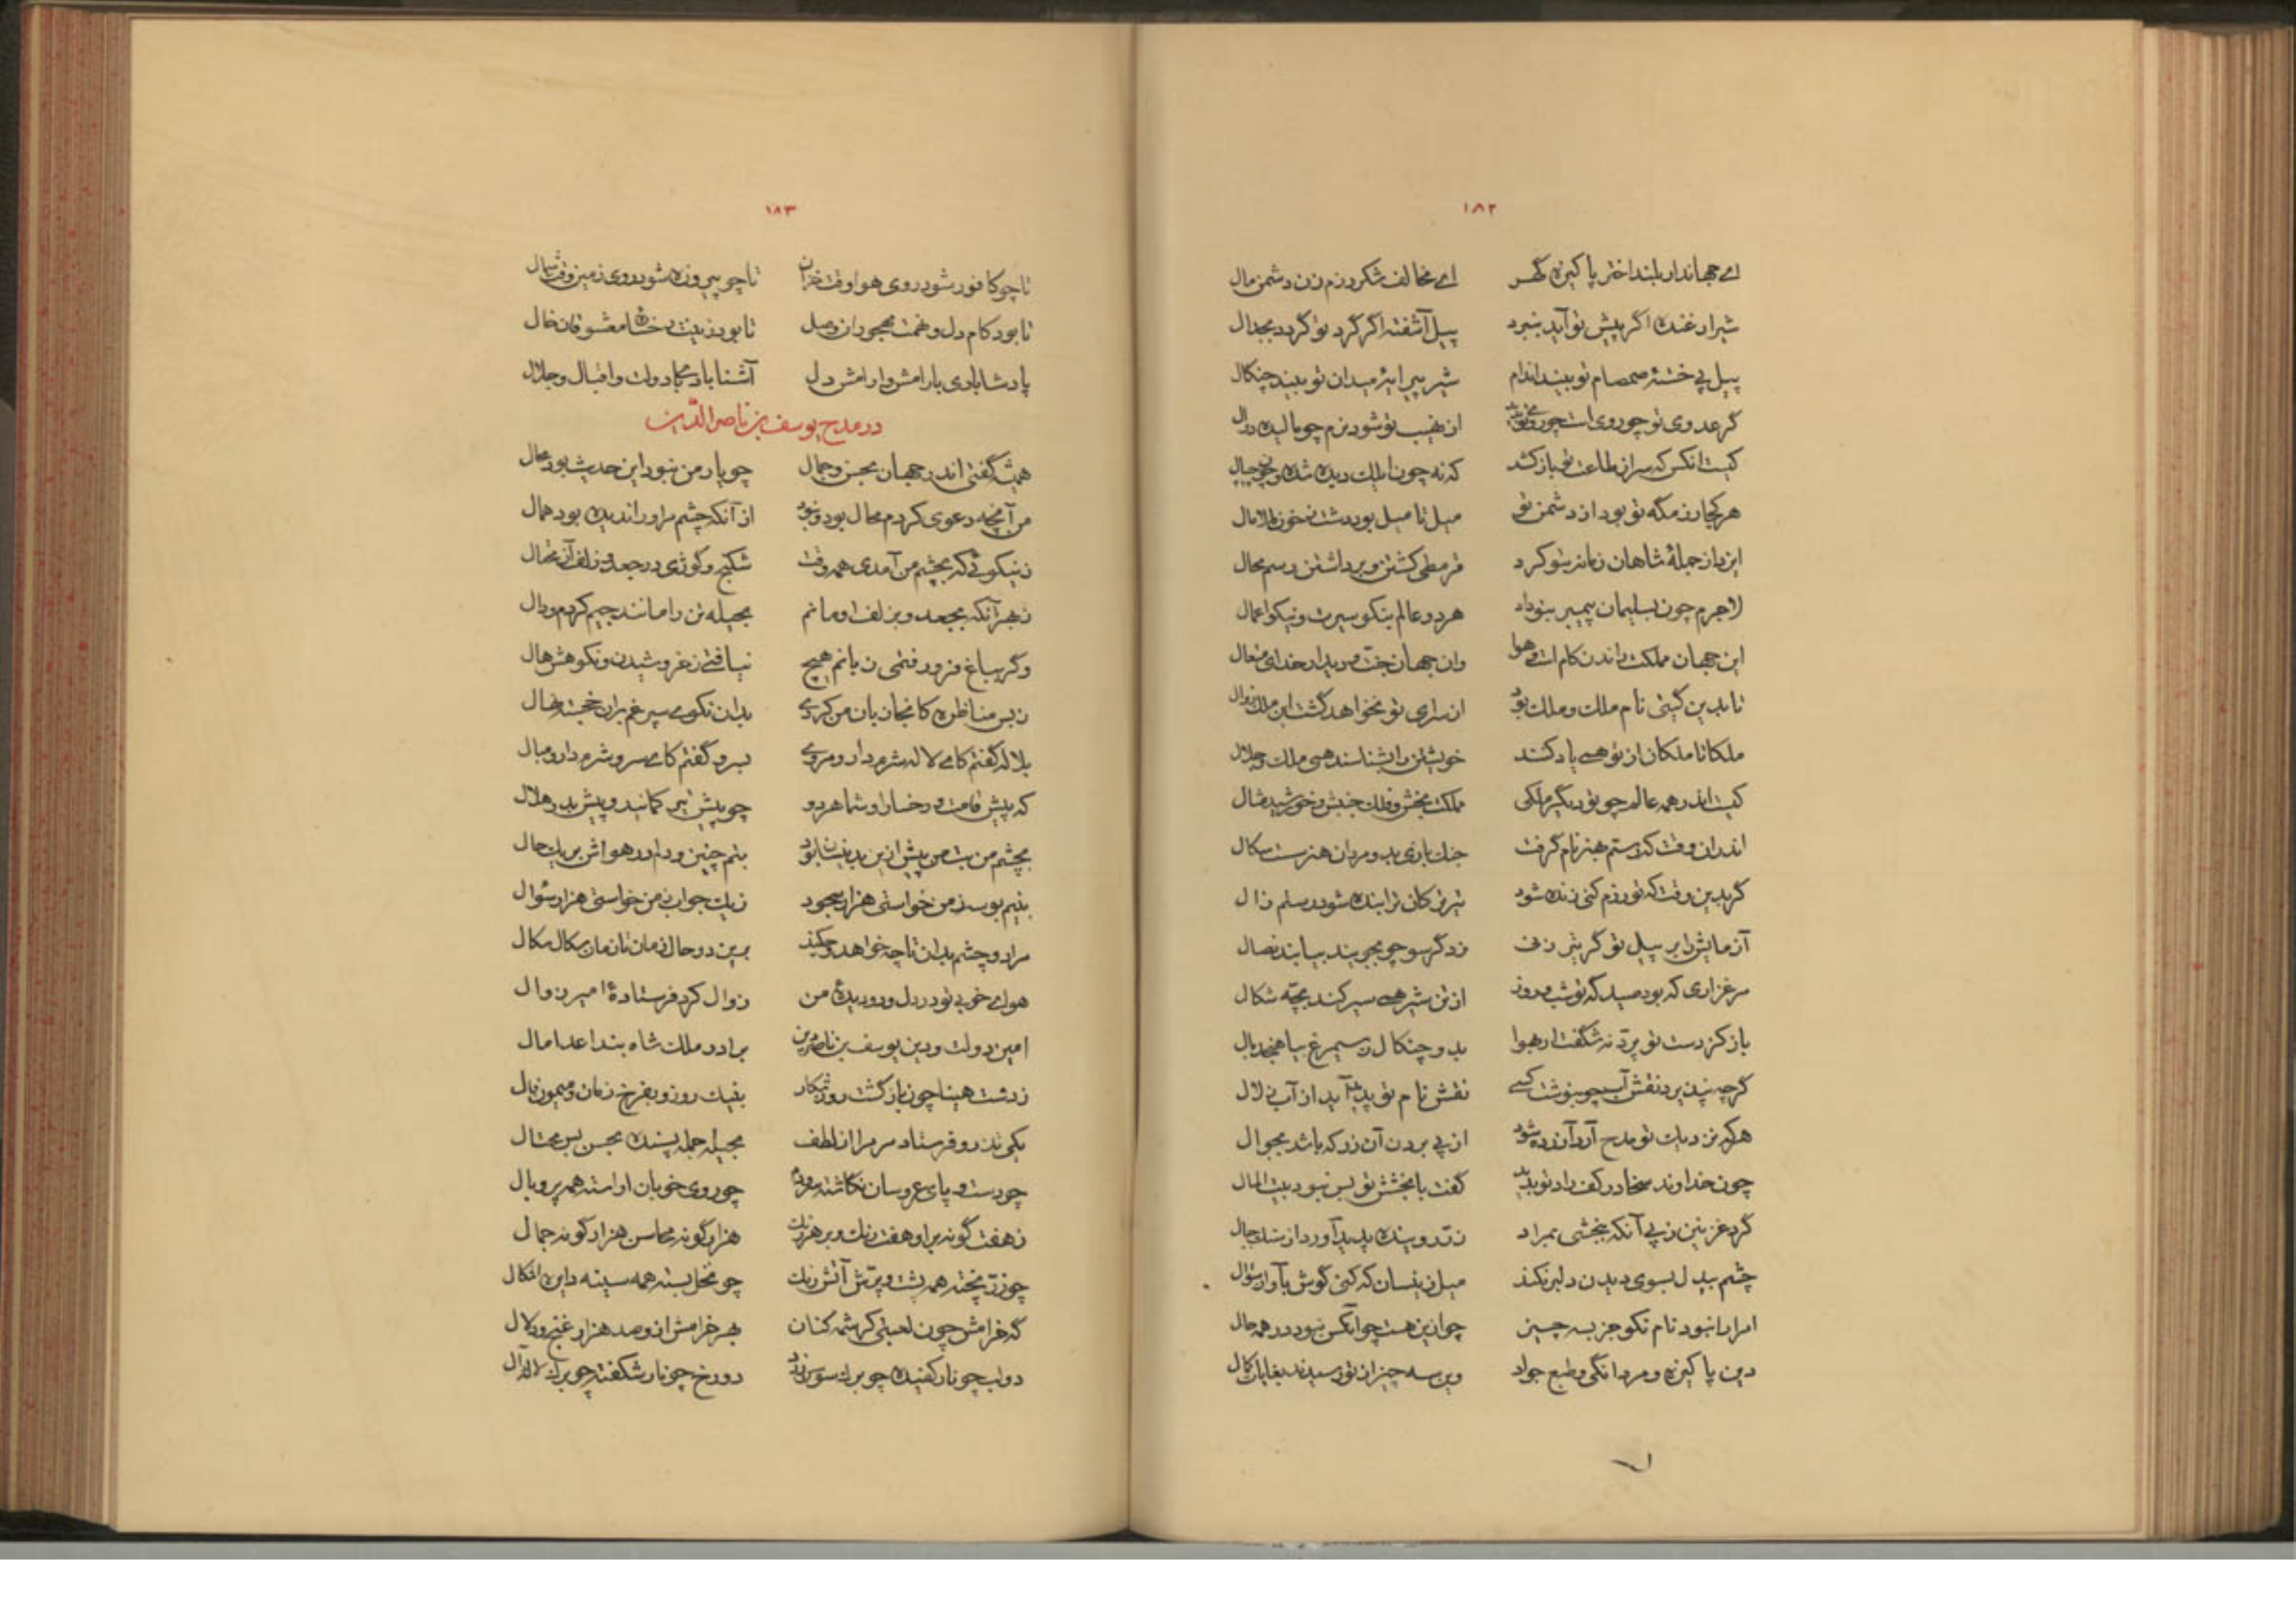 ۱۸۲
ای جهاندار بلند اختر پاکیزه گهر ای مخالف شکر رزم زن دشمن مال
شیر ارغنده اگر پیش تو آید بنبرد پیل آشفته اگر گرد تو گردد بجدال
پیل پی خستهٔ صمصام تو بیند اندام شیر پیرایهٔ میدان تو بیند چنکال
گر عدوی تو چو روی است چو روی تو بدید از نهیب تو شود نرم چو مالیده دوال
کیست انکس که سر از طاعت تو باز کشد که نه چون ایلک دیده شده و چون جیپال
هر کجا رزمگه تو بود از دشمن تو میل تا میل بود دشت ز خون مالامال
این باز جملهٔ شاهان زمانه تو کرد قرمطی کشتن و برداشتن رسم محال
لاجرم چون بسلیمان پیمبر بتو داد هر دو عالم بنکو سیرت و نیکو اعمال
این جهان مملکت راندن کام است و هوا وان جهان جنت و دیدار خدای متعال
تا بدین گیتی نام ملک و ملک بود از سرای تو نخواهد گشت این ملک زوال
ملکا تا ملکان از تو همی یاد کنند خویشتن را بشناسند همی ملک و جلال
کیست اندر همه عالم چو تو دیگر ملکی مملکت بخش و فلک جنبش و خورشید مثال
اندران وقت که رستم بهنر نام گرفت جنک بازی بد و مردان هنر سست سکال
گر بدین وقت که تو رزم کنی زنده شود تیر ترکان ترا بنده شود رستم زال
آزمایش را بر پیل تو گر تیر زنی زدگر سو چو بجویند بیابند نصال
مرغزاری که بود صیدگه تو شب و روز از تن شیر همی سیر کند بچه شکال
باز کز دست تو پرد نه شگفت ار بهوا بد و چنکال ز سیمرغ بیاهنجد بال
گر چه نپذیرد نقش آب چو بنوشت کسی نقش نام تو پدید آید از آب زلال
هر که نزدیک تو مدح آرد آزرده شود از پی بردن آن زر که باشد بجوال
چون خداوند سخا در کف راد تو بدید گفت با بخشش تو بس نبود بیت المال
گرد غزنین ز پی آنکه ببخشی بمراد زر روینده پدید آورد از سنک جبال
چشم بیدل بسوی دیدن دلبر نکند میل زینسان که کنی گوش بآواز سؤال
امرا را نبود نام نکو جز بسه چیز چو ازین هست چو آنکس نبود در همه حال
دین پاکیزه و مردانگی و طبع جواد وین سه چیز از تو رسیدند بغایات کمال
۱۸۳
تا چو کافور شود روی هوا وقت خزان تا چو پیروزه شود روی زمین وقت شمال
تا بود کام دل و همت مهجوران وصل تا بود زینت رخسارهٔ معشوقان خال
پادشا بادی با رامش و ارامش دل آشنا باد بکا دولت و اقبال و جلال
در مدح یوسف بن ناصر الدین
همیشه گفتی اندر جهان بحسن و جمال چو یار من نبود این حدیث بود محال
من آنچه دعوی کردم محال بود و نبود از آنکه چشم مرا اورا ندیده بود همال
ز نیکوئی که بچشم من آمدی همه وقت شکنج و کوژی در جعد و زلف آن محتال
ز بهر آنکه بجعد و بزلف او مانم بحیله تن را مانند جیم کردم و دال
و گر بباغ فرو رفتمی زبانم هیچ نیافتی ز خروشیدن و نکوهش هال
ز بس مناظره کانجا زبان من کردی بدان نکوی سپرغم بران خجسته نهال
بلاله گفتم کای لاله شرم دار و مروی بسرو گفتم کای سرو شرم دار و مبال
که پیش قامت و رخسار او شما هر دو چو پیش تیر کمانید و پیش بدر هلال
بچشم من بت من پیش ازین بدینسان بود بتم چنین و دلم در هواش بر یک حال
بنیم بوسه ز من خواستی هزار سجود ز یک جواب ز من خواستی هزار سؤال
مرا دو چشم بدان تا چه خواهد و چکند برین دو حال زمان تا زمان سکال سکال
هوای خوبی تو در دل و در دیدهٔ من زوال کرد فرستادهٔ امیر زوال
امین دولت و دین یوسف بن ناصر دین برادر ملک شاه بند اعدا مال
ز دشت هیتا چون بازگشت روز شکار بنیک روز و بفرخ زمان و میمون فال
یکی تذرو فرستاد مر مرا از لطف بحیله جمله پسنده بحسن بس محتال
چو دست و پای عروسان نگاشته سر و دم چو روی خوبان اراسته همه پر و بال
ز هفت گونه بر او هفت رنک و بر هر رنک هزار گونه محاسن هزار گونه جمال
چو زر پخته همه پشت و پرش آتش رنک چو نخل بسته همه سینه دایره اشکال
گه خرامش چون لعبتی کرشمه کنان بهر خرامش ازو صد هزار غنج و دلال
دو لب چو نار کفیده چو برک سوسن زرد دو رخ چو نار شکفته چو برک لاله آل